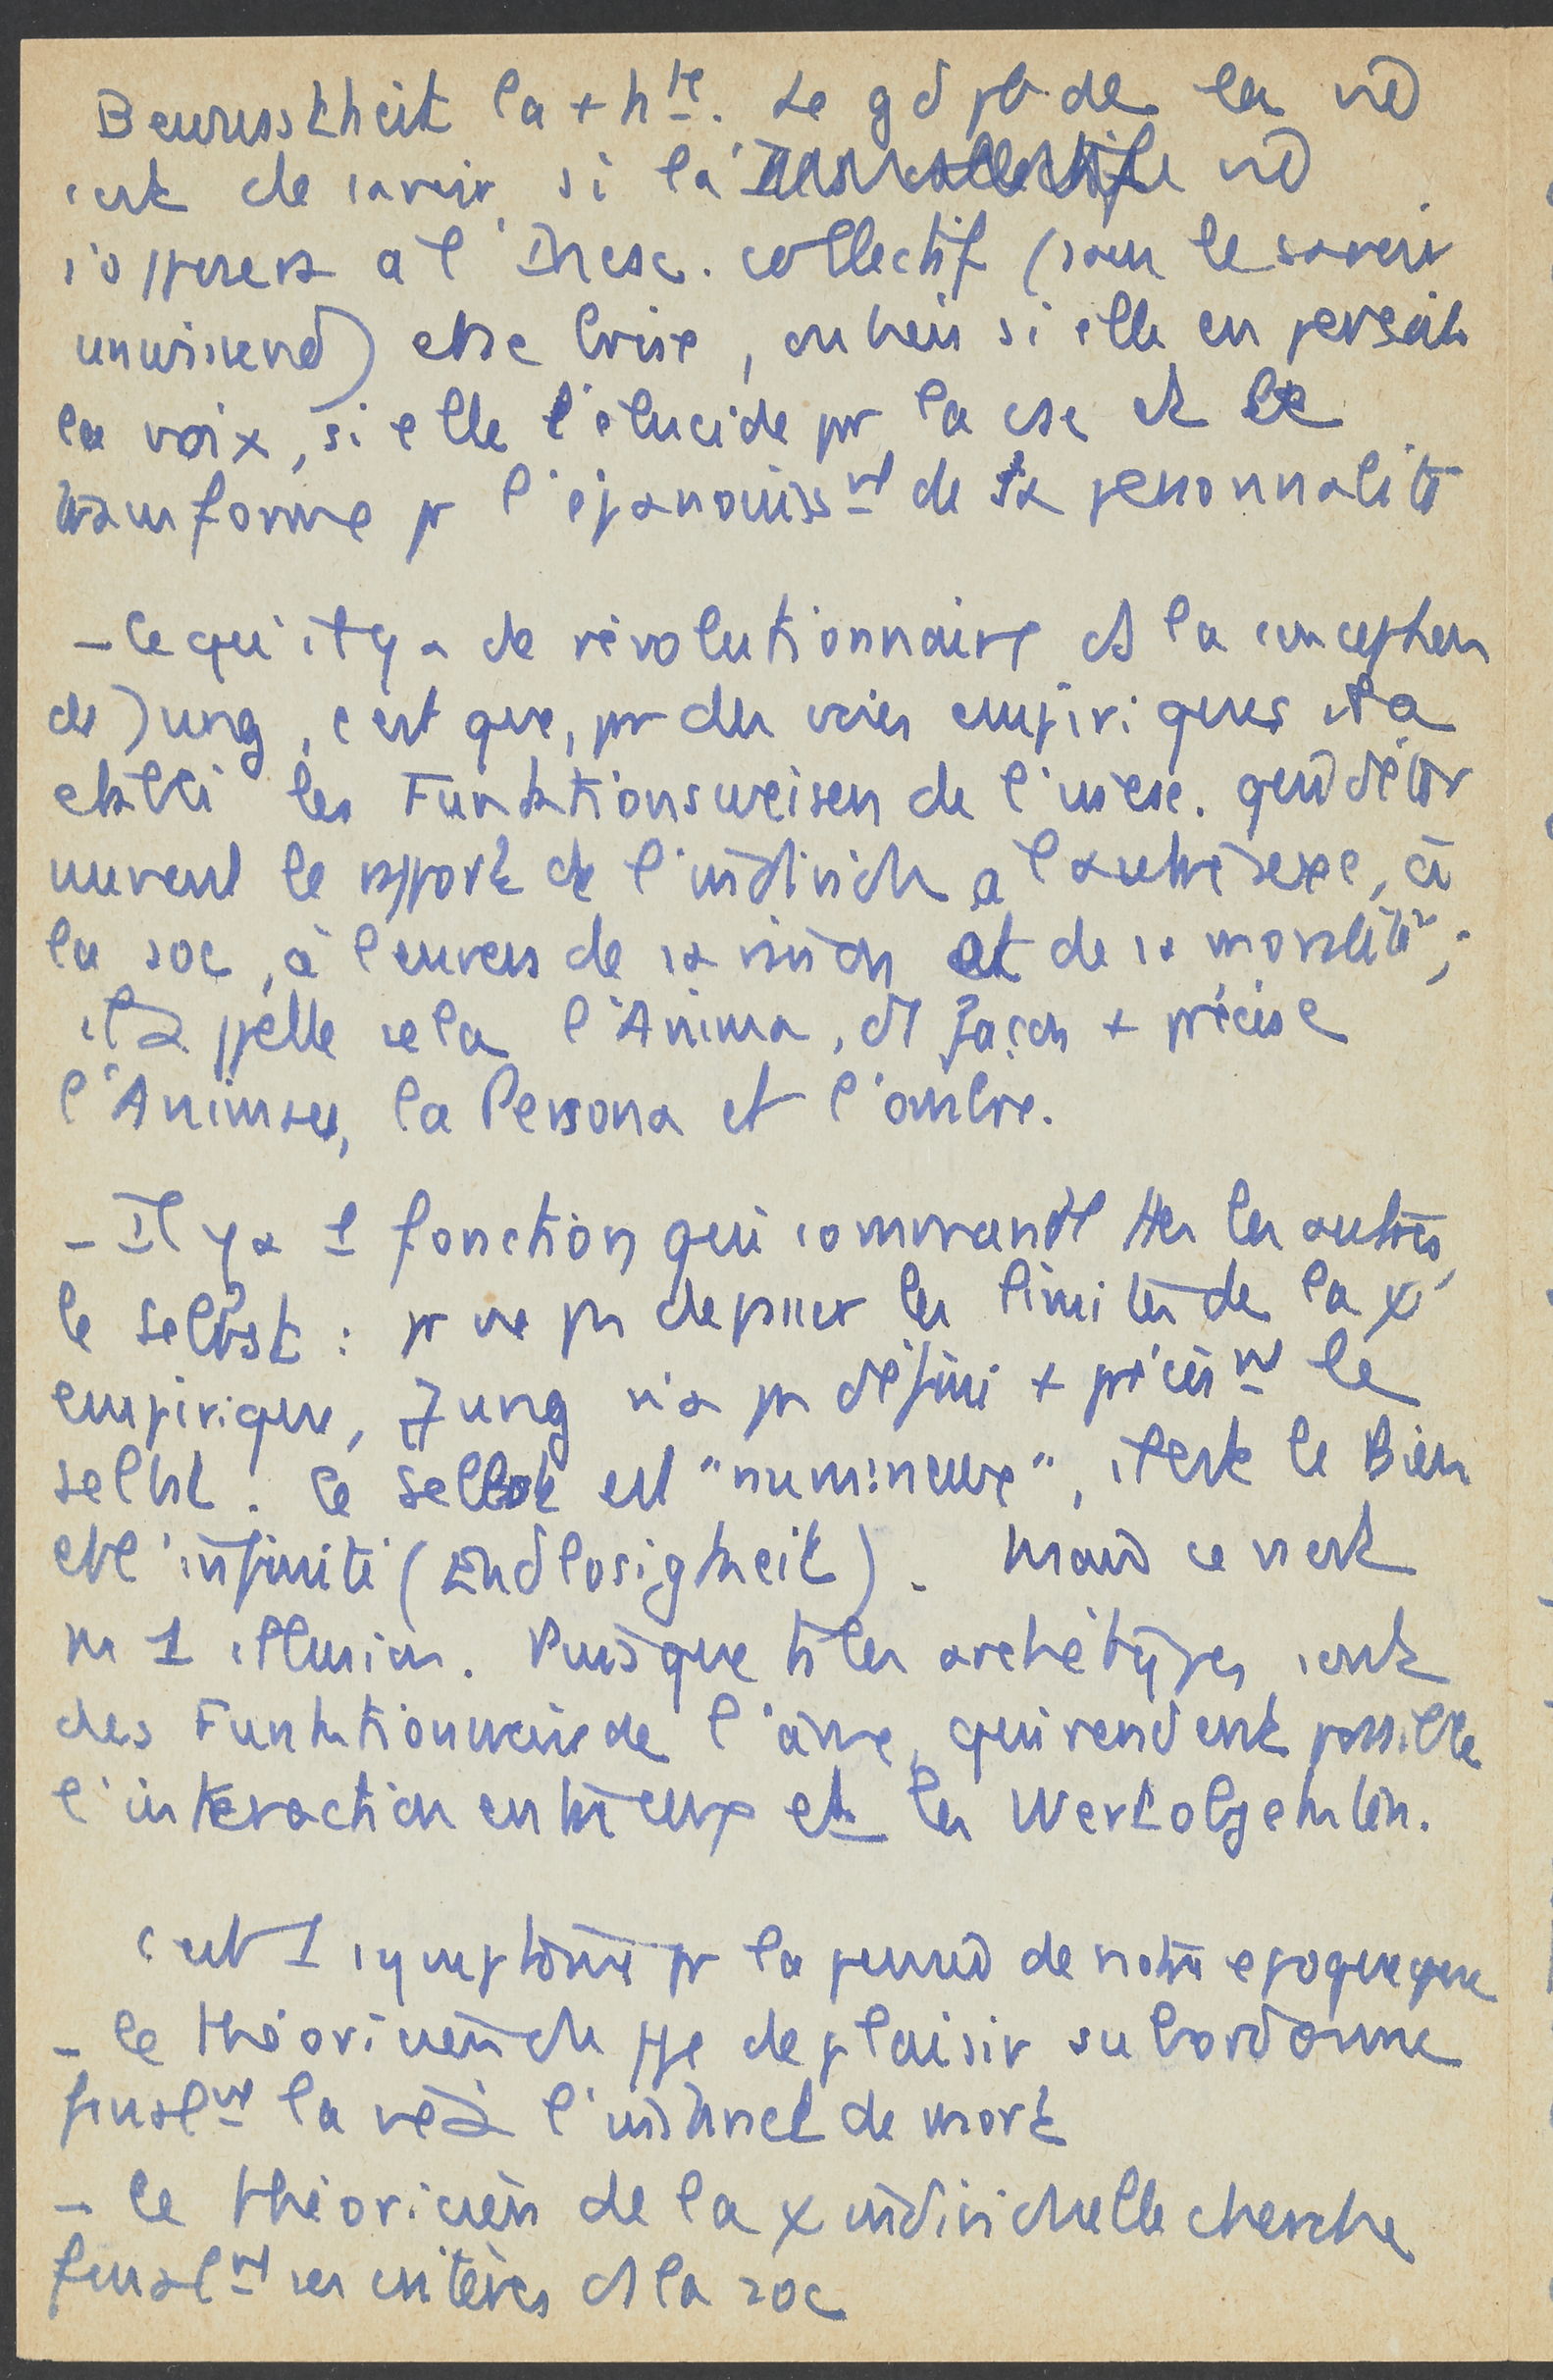 Bewusstheit la + hte. Le gd pb de la vie
c'est de savoir si la vie
s'opposera à l'Incsc. collectif (sans le savoir
unwissend) et se brise, ou bien si elle en perçoit
la voix, si elle l'élucide pr la csc et le
transforme pr l'épanouisst de sa personnalité
- Ce qu'il y a de révolutionnaire ds la conception
de Jung, c'est que, pr des voies empiriques il a
établi les Funktionsweisen de l'incsc. qui déter
minent le rapport de l'individu à l'autre sexe, à
la soc, à l'envers de sa vision et de sa moralité;
il appelle cela l'Anima, de façon + précise
l'Animus, la Persona et l'ombre.
- Il y a 1 fonction qui commande ttes les autres,
le Selbst : pr ne ps dépasser les limites de la ψ
empirique, Jung n'a ps défini + précist le
Selbst. Le Selbst est "numineux", il est le Bien
et l'infinité (Endlosigkeit). Mais ce n'est
ps 1 illusion. Puisque ts les archétypes sont
des Funktionsweise de l'âme, qui rendent possible
l'interaction entre eux et les Wertobjekten.
C'est 1 symptôme pr la pensée de notre époque que
- le théoricien du ppe de plaisir subordonne
finalt la vie à l'instinct de mort
- le théoricien de la ψ individuelle cherche
finalt ses critères ds la soc